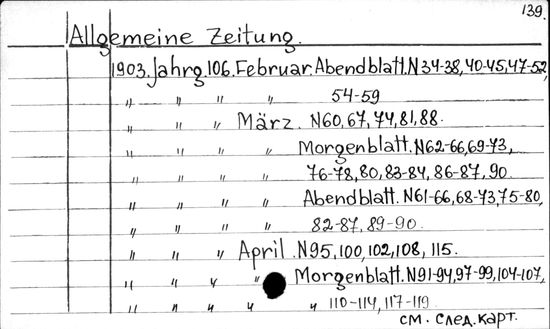 139.
Allgemeine Zeitung.
1903. Jahrg. 106. Februar. Abendblatt. N 34-38, 40-45, 47-52,
" " " " 54-59
" " " März. N 60, 67, 74, 81, 88.
" " " " Morgenblatt. N 62-66, 69-73,
" " " " 76-78, 80, 83-84, 86-87, 90.
" " " " Abendblatt. N 61-66, 68-73, 75-80,
" " " " 82-87, 89-90.
" " " April. N 95, 100, 102, 108, 115.
" " " " Morgenblatt. N 91-94, 97-99, 104-107,
" " " " " 110-114, 117-119.
см. след. карт.